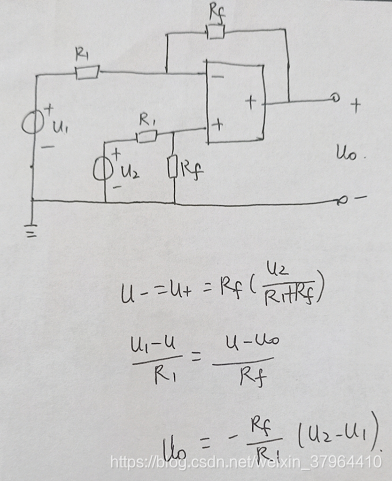 Rf
R1
−
+
+
+
u1
−
R1
+
+
u2
−
Rf
uo
−
u- = u+ = Rf ( u2 / R1+Rf )
u1-u / R1 = u-uo / Rf
uo = - Rf / R1 (u2-u1).
https://blog.csdn.net/weixin_37964410